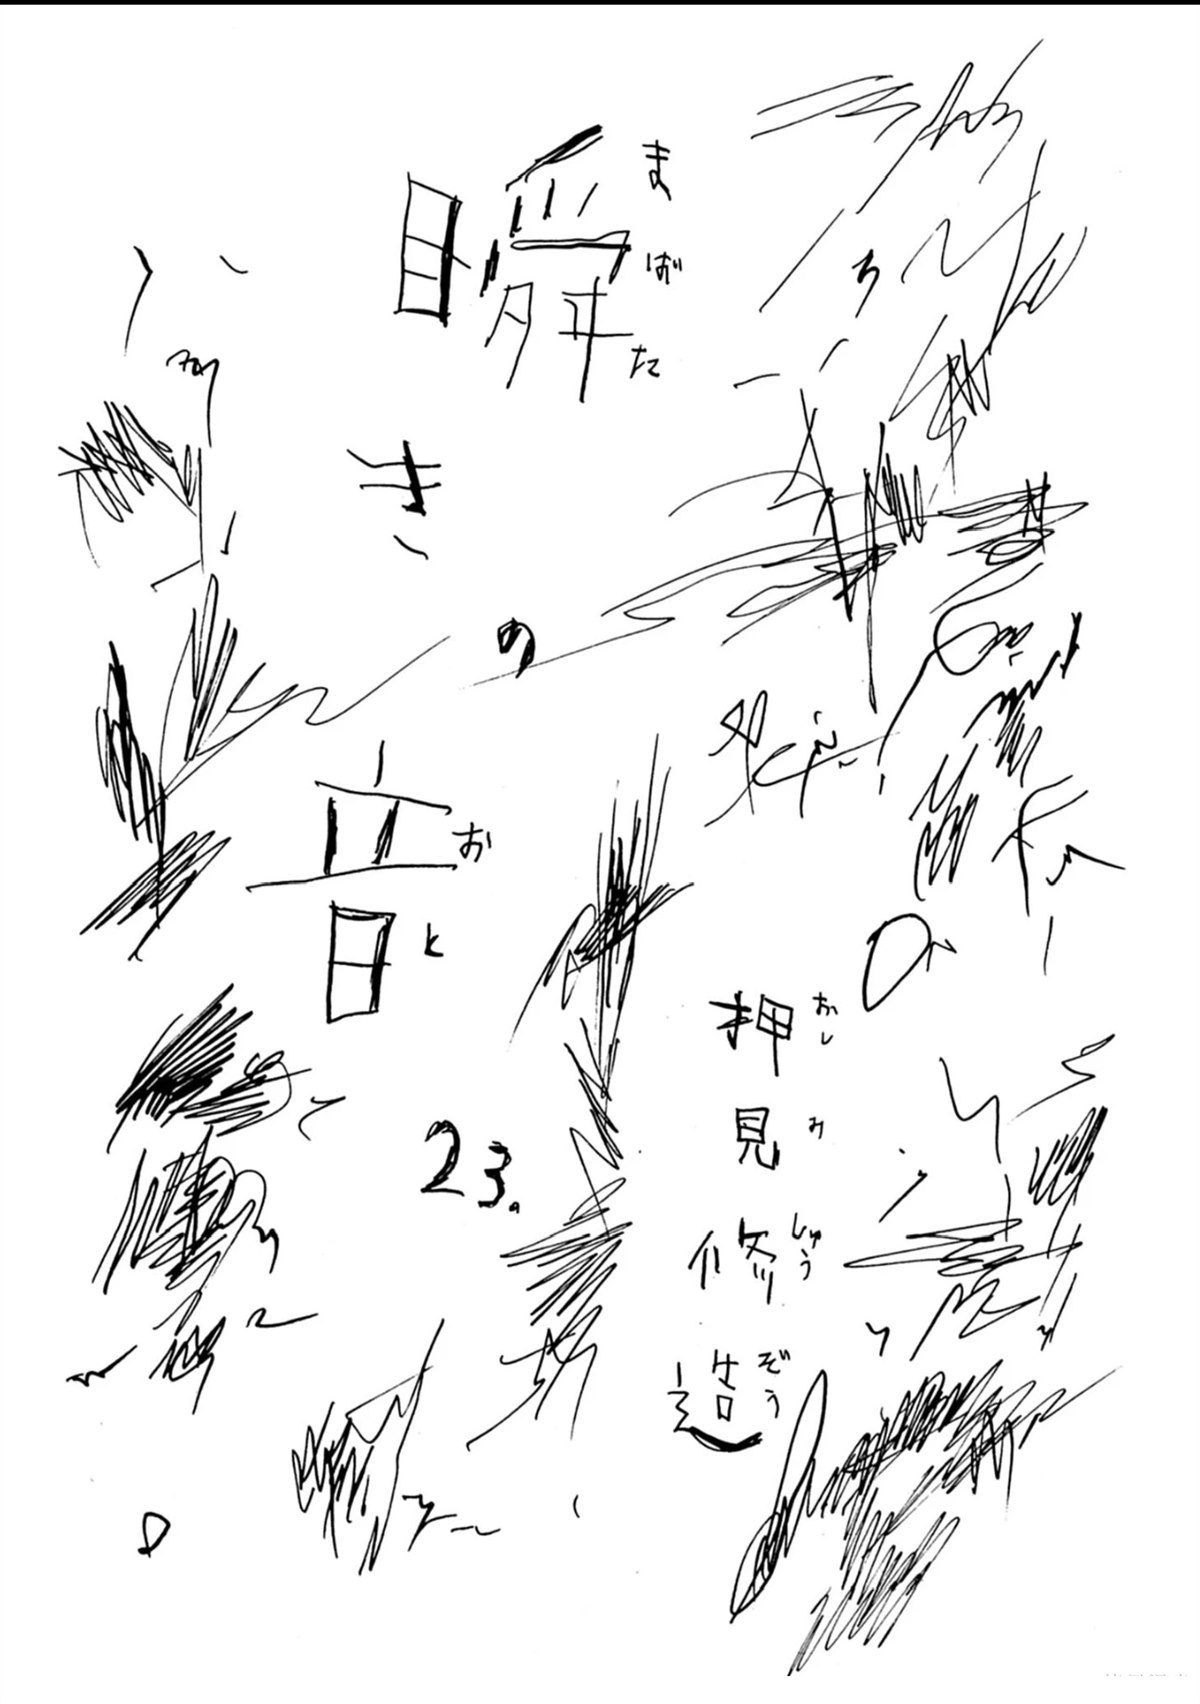 瞬き
まばた
の
音
おと
23.
押見修造
おしみしゅうぞう